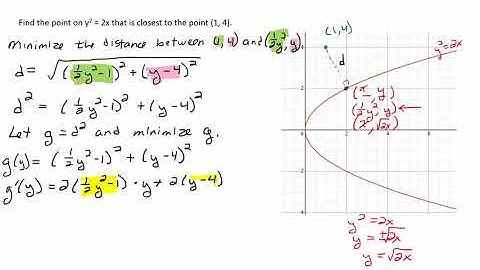 Find the point on y² = 2x that is closest to the point (1, 4).
Minimize the distance between (1, 4) and (½y², y)
d = √((½y²-1)² + (y-4)²)
d² = (½y²-1)² + (y-4)²
Let g = d² and minimize g.
g(y) = (½y²-1)² + (y-4)²
g'(y) = 2(½y²-1) · y + 2(y-4)
(1,4)
d
y²=2x
(x, y)
(½y², y) ←
(x, √2x)
y² = 2x
y = ±√2x
y = √2x